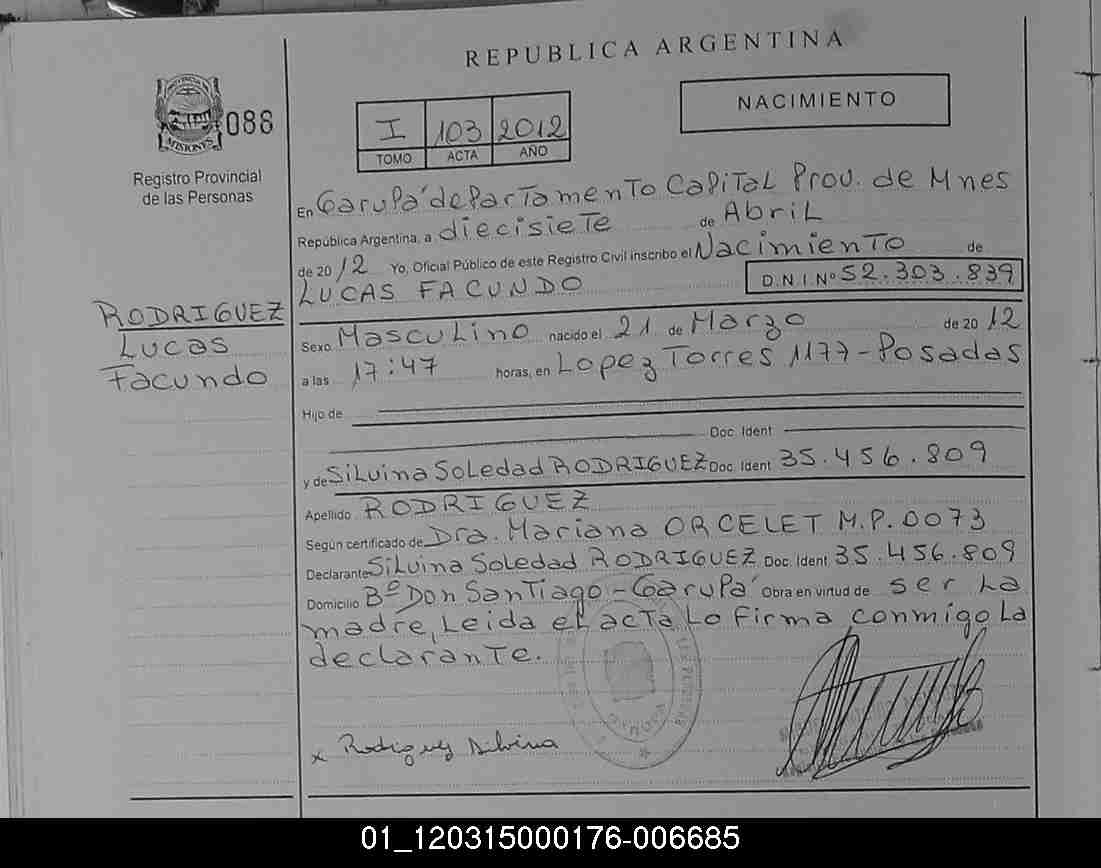 REPUBLICA ARGENTINA
PROVINCIA DE
MISIONES
088
Registro Provincial
de las Personas
I 103 2012
TOMO ACTA AÑO
NACIMIENTO
En Garupá departamento Capital Prov. de Mnes
República Argentina, a diecisiete de Abril
de 2012 Yo, Oficial Público de este Registro Civil inscribo el Nacimiento de
LUCAS FACUNDO D.N.I. Nº 52.303.839
RODRIGUEZ
Lucas
Facundo
Sexo Masculino nacido el 21 de Marzo de 2012
a las 17:47 horas, en Lopez Torres 1177-Posadas
Hijo de
Doc. Ident
y de Silvina Soledad RODRIGUEZ Doc. Ident 35.456.809
Apellido RODRIGUEZ
Según certificado de Dra. Mariana ORCELET M.P. 0073
Declarante Silvina Soledad RODRIGUEZ Doc. Ident. 35.456.809
Domicilio Bº Don Santiago-Garupá Obra en virtud de ser la
madre, Leida el acta Lo firma conmigo La
declarante.
x Rodriguez Silvina
01_120315000176-006685